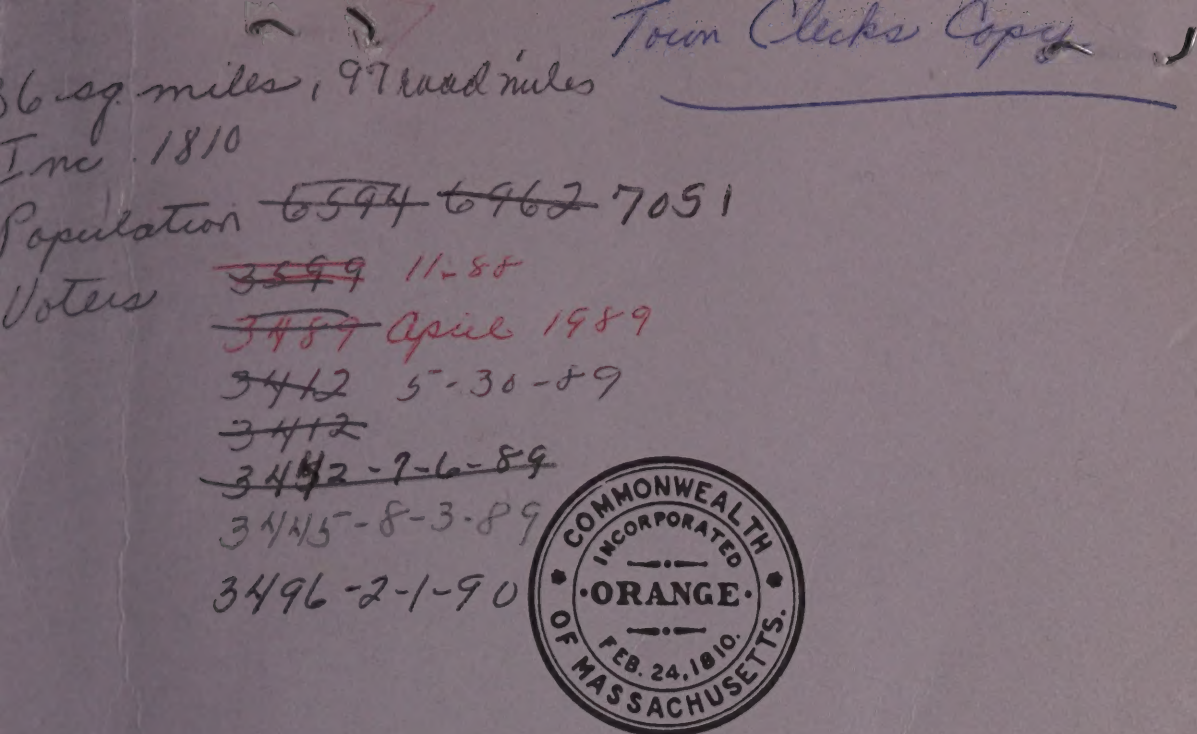 Town Clerks Copy
36 sq. miles, 97 road miles
Inc. 1810
Population 6594 6962 7051
Voters 3599 11-88
3489 April 1989
3412 5-30-89
3412
3442-7-6-89
3445-8-3-89
3496-2-1-90
COMMONWEALTH OF MASSACHUSETTS.
INCORPORATED
·ORANGE·
FEB. 24, 1810.